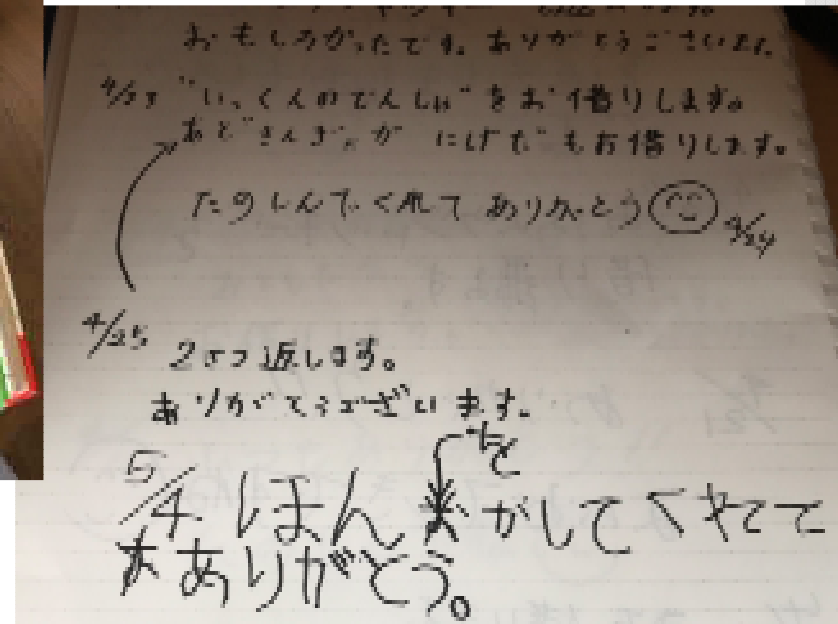 おもしろかったです。ありがとうございます。
4/23 "いっくんのでんしゃ"をお借りします。
にげだ"もお借りします。
たのしんでくれてありがとう 4/24
4/25 2さつ返します。
ありがとうございます。
を
5/4 ほん がしてくれて
ありがとう。